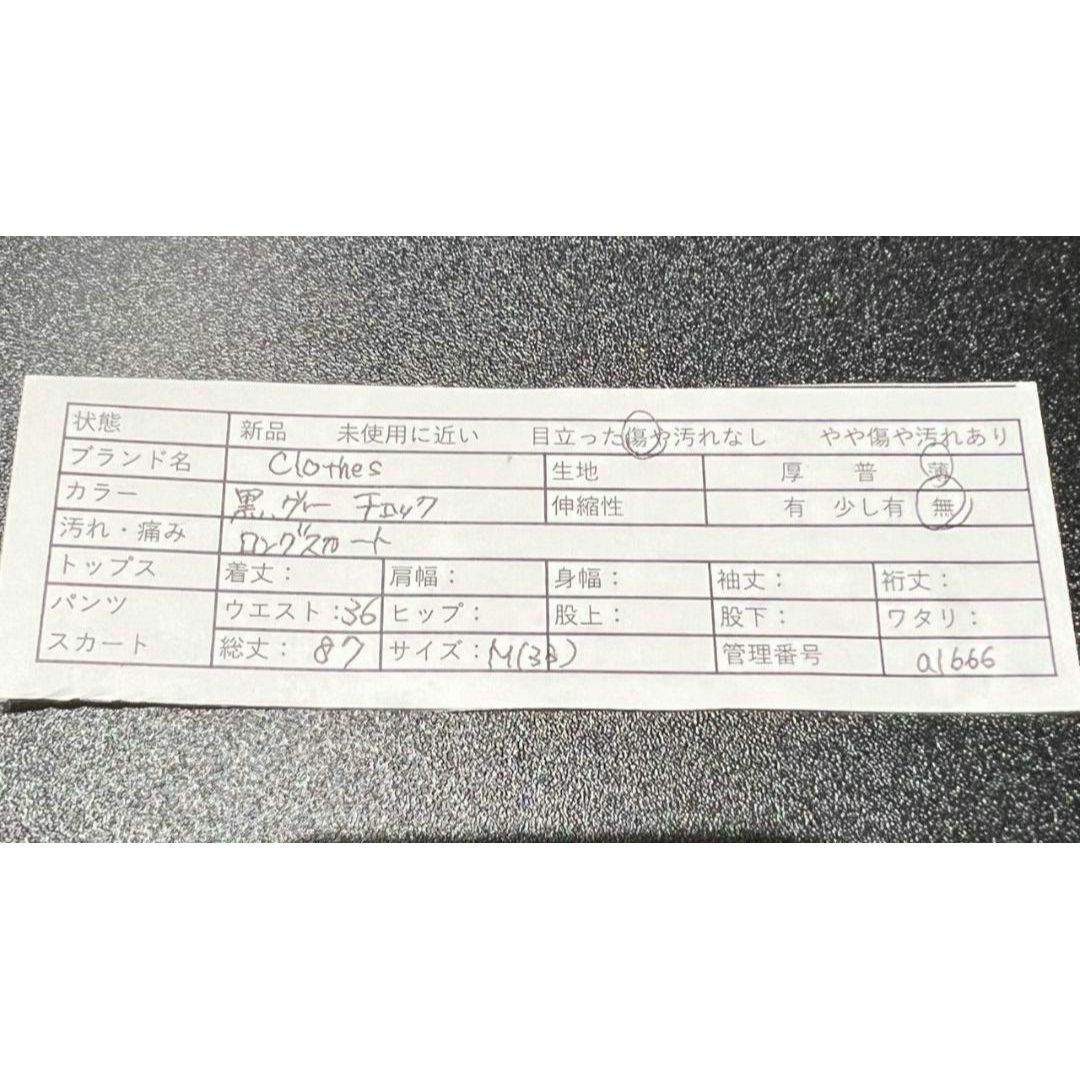 状態 新品 未使用に近い 目立った傷や汚れなし やや傷や汚れあり
ブランド名 Clothes 生地 厚 普 薄
カラー 黒、グレー チェック 伸縮性 有 少し有 無
汚れ・痛み ロングスカート
トップス 着丈： 肩幅： 身幅： 袖丈： 裄丈：
パンツ ウエスト：36 ヒップ： 股上： 股下： ワタリ：
スカート 総丈：87 サイズ：M(38) 管理番号 a1666